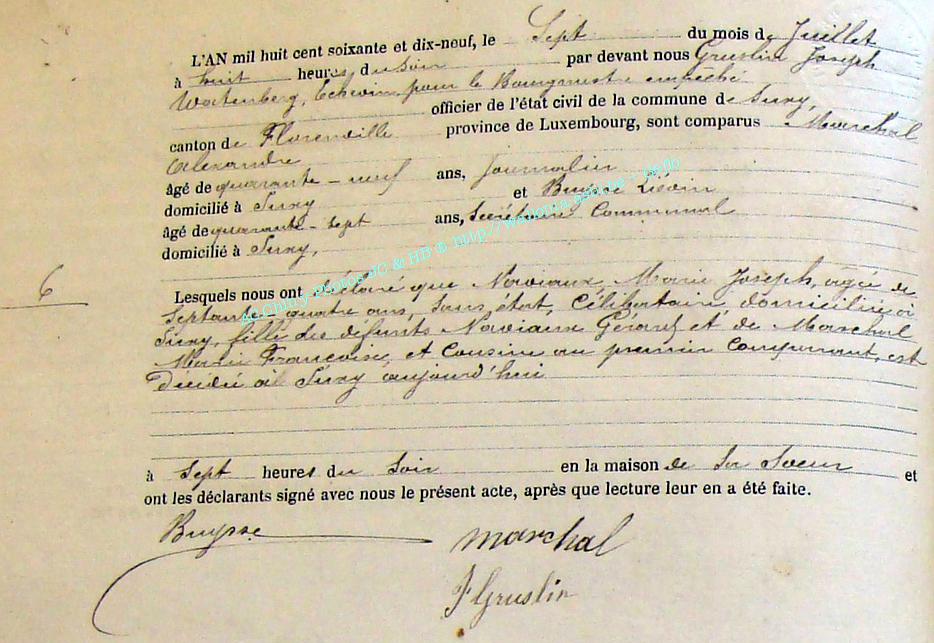 L'AN mil huit cent soixante et dix-neuf, le Sept du mois de Juillet
à huit heures du soir par devant nous Gruslin Joseph
Echevin, pour le Bourgmestre empêché
officier de l'état civil de la commune de Suxy,
canton de Florenville province de Luxembourg, sont comparus Marchal
Alexandre
âgé de quarante-neuf ans, Journalier
domicilié à Suxy et Buysse Liévin
âgé de quarante-sept ans, Secrétaire Communal
domicilié à Suxy,
6
Lesquels nous ont déclaré que Naviaux, Marie Joseph, agée de
Septante quatre ans, Sans état, Célibataire domiciliée à
Suxy, fille des défunts Naviaux Gérard et de Marchal
Marie Françoise, et Cousine au premier Comparant, est
décédée à Suxy aujourd'hui
à Sept heures du Soir en la maison de Sa Soeur et
ont les déclarants signé avec nous le présent acte, après que lecture leur en a été faite.
Buysse marchal
J Gruslin
Chiny Photos JC & HB & http://